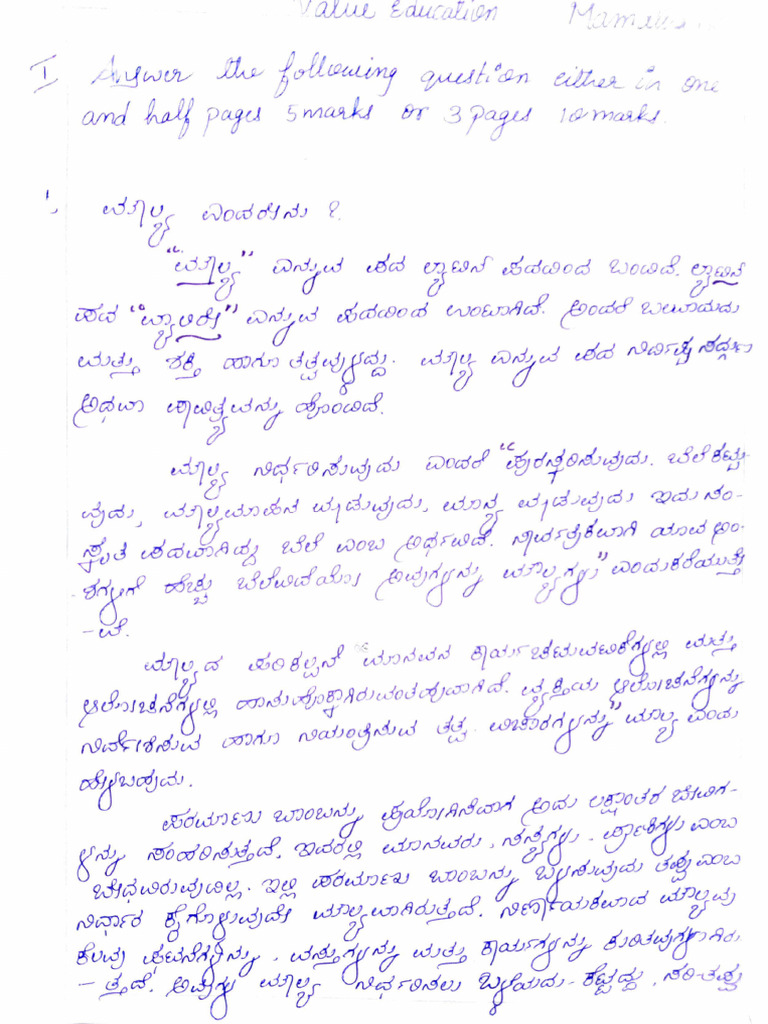 Value Education
I Answer the following question either in one
and half pages 5 marks or 3 pages 10 marks.
1. ಮೌಲ್ಯ ಎಂದರೇನು ?
"ಮೌಲ್ಯ" ಎನ್ನುವ ಪದ ಲ್ಯಾಟಿನ್ ಪದದಿಂದ ಬಂದಿದೆ. ಲ್ಯಾಟಿನ
ಪದ "ವ್ಯಾಲಿರೆ" ಎನ್ನುವ ಪದದಿಂದ ಉಂಟಾಗಿದೆ. ಅಂದರೆ ಬಲವಾದದು
ಮತ್ತು ಶಕ್ತಿ ಹಾಗೂ ತತ್ವವುಳ್ಳದ್ದು. ಮೌಲ್ಯ ಎನ್ನುವ ಪದ ನಿರ್ದಿಷ್ಟ ಸದ್ಗುಣ
ಅಥವಾ ಪಾವಿತ್ರ್ಯವನ್ನು ಹೊಂದಿದೆ.
ಮೌಲ್ಯ ನಿರ್ಧರಿಸುವುದು ಎಂದರೆ "ಪುರಸ್ಕರಿಸುವುದು. ಬೆಲೆ ಕಟ್ಟು-
ವುದು, ಮೌಲ್ಯಮಾಪನ ಮಾಡುವುದು, ಮಾನ್ಯ ಮಾಡುವುದು ಇದು ಸಂ-
ಸ್ಕೃತ ಪದವಾಗಿದ್ದು ಬೆಲೆ ಎಂಬ ಅರ್ಥವಿದೆ. ಸಾರ್ವತ್ರಿಕವಾಗಿ ಯಾವ ಅಂ-
ಶಗಳಿಗೆ ಹೆಚ್ಚು ಬೆಲೆಯಿದೆಯೋ ಅವುಗಳನ್ನು ಮೌಲ್ಯಗಳು" ಎಂದು ಕರೆಯುತ್ತೇ
-ವೆ.
ಮೌಲ್ಯದ ಪರಿಕಲ್ಪನೆ ಮಾನವನ ಕಾರ್ಯಚಟುವಟಿಕೆಗಳಲ್ಲಿ ಮತ್ತು
ಆಲೋಚನೆಗಳಲ್ಲಿ ಹಾಸುಹೊಕ್ಕಾಗಿರುವಂತಹುದಾಗಿದೆ. ವ್ಯಕ್ತಿಯ ಆಲೋಚನೆಗಳನ್ನು
ನಿರ್ದೇಶಿಸುವ ಹಾಗೂ ನಿಯಂತ್ರಿಸುವ ತತ್ವ ವಿಚಾರಗಳನ್ನು "ಮೌಲ್ಯ ಎಂದು
ಹೇಳಬಹುದು.
ಪರಮಾಣು ಬಾಂಬನ್ನು ಪ್ರಯೋಗಿಸಿದಾಗ ಅದು ಲಕ್ಷಾಂತರ ಜೀವಿಗ-
ಳನ್ನು ಸಂಹರಿಸುತ್ತದೆ. ಇದರಲ್ಲಿ ಮಾನವರು, ಸಸ್ಯಗಳು, ಪ್ರಾಣಿಗಳು ಎಂಬ
ಬೇಧವಿರುವುದಿಲ್ಲ. ಇಲ್ಲಿ ಪರಮಾಣು ಬಾಂಬನ್ನು ಬಳಸುವುದು ತಪ್ಪು ಎಂಬ
ನಿರ್ಧಾರ ಕೈಗೊಳ್ಳುವುದೇ ಮೌಲ್ಯವಾಗಿರುತ್ತದೆ. ನಿರ್ಣಾಯಕವಾದ ಮೌಲ್ಯವು
ಕೆಲವು ಘಟನೆಗಳನ್ನು, ವಸ್ತುಗಳನ್ನು ಮತ್ತು ಕಾರ್ಯಗಳನ್ನು ಕುರಿತವುಗಳಾಗಿರು
-ತ್ತದೆ. ಅವುಗಳು ಮೌಲ್ಯ ನಿರ್ಧರಿಸಲು ಒಳ್ಳೆಯದು-ಕೆಟ್ಟದ್ದು, ಸರಿ-ತಪ್ಪು